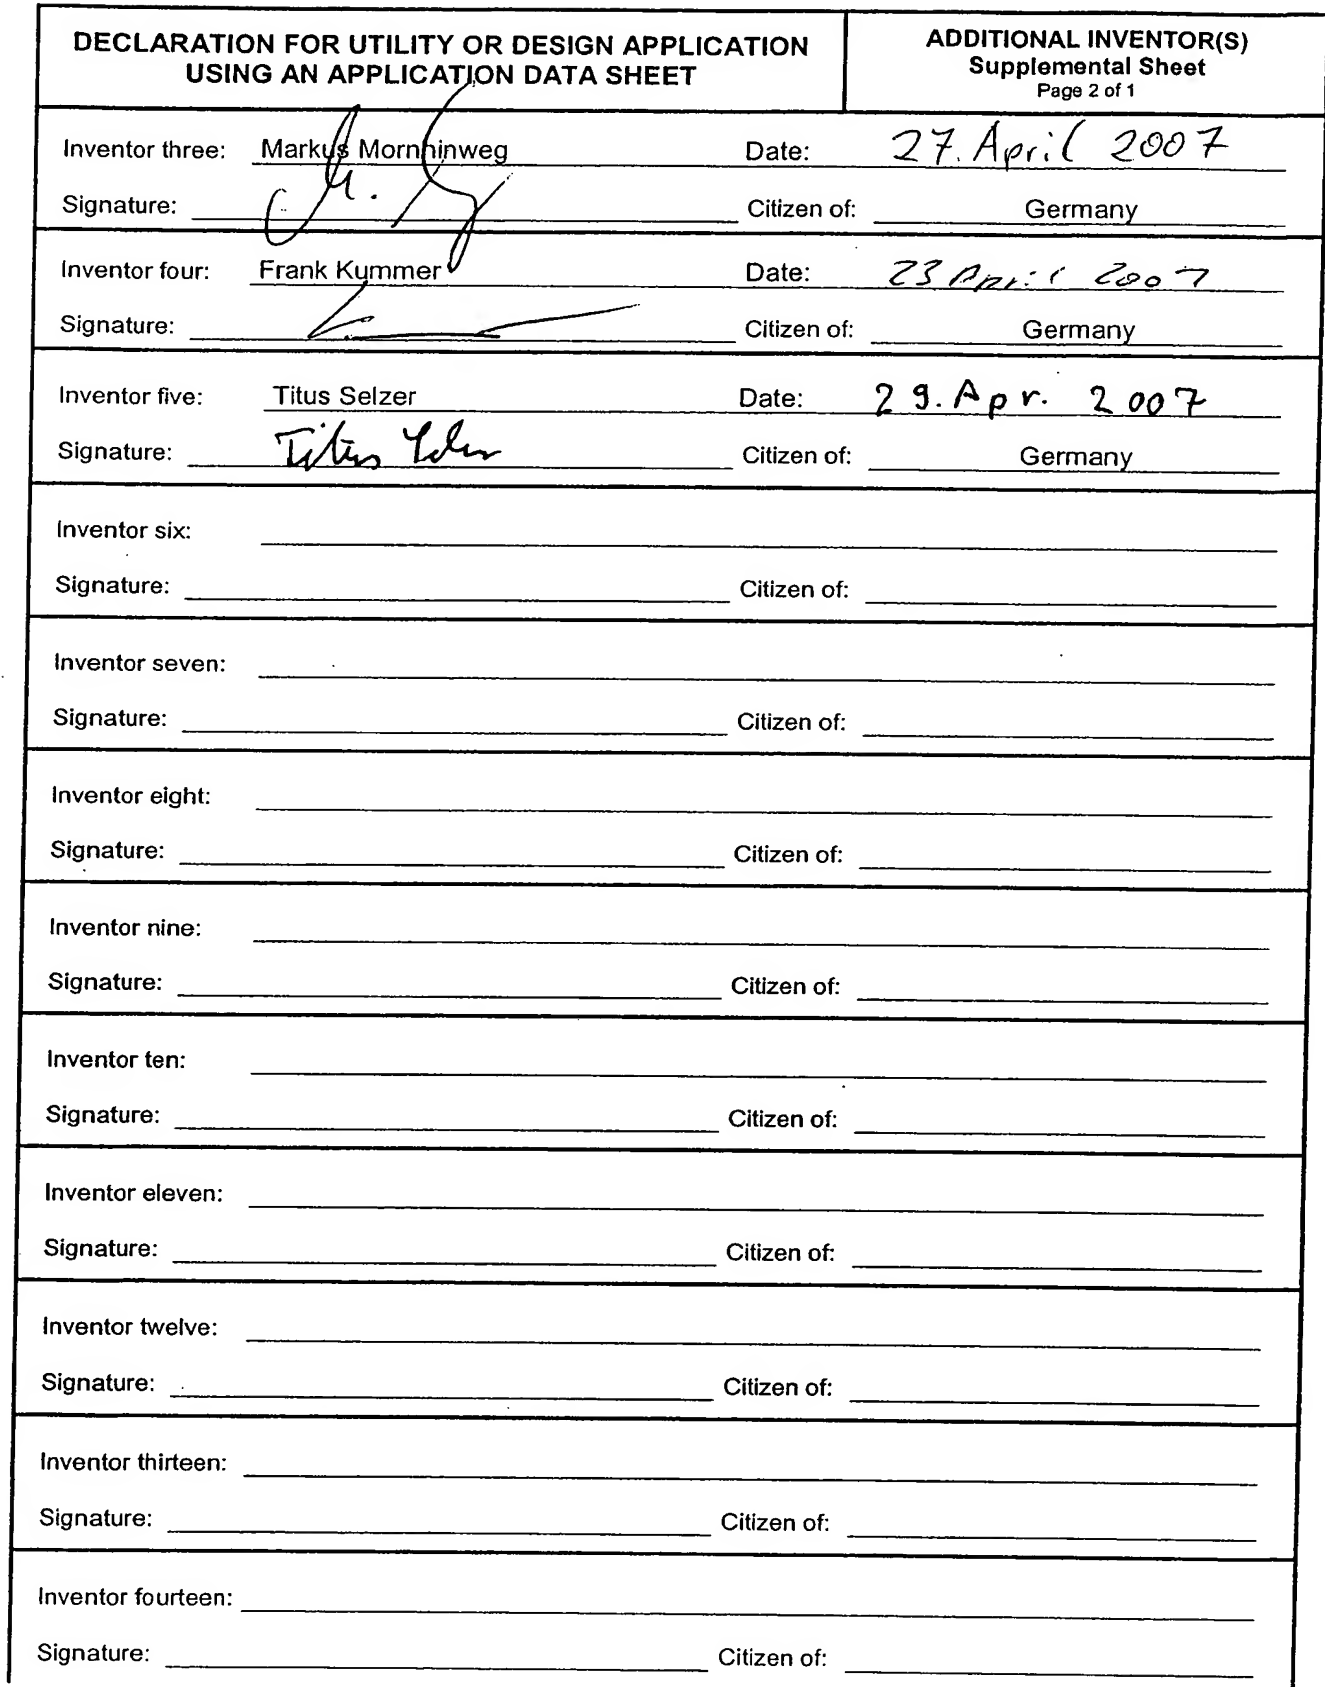 DECLARATION FOR UTILITY OR DESIGN APPLICATION
USING AN APPLICATION DATA SHEET
ADDITIONAL INVENTOR(S)
Supplemental Sheet
Page 2 of 1
Inventor three: Markus Mornhinweg Date: 27. April 2007
Signature: Citizen of: Germany
Inventor four: Frank Kummer Date: 23 April 2007
Signature: Citizen of: Germany
Inventor five: Titus Selzer Date: 29. Apr. 2007
Signature: Titus Citizen of: Germany
Inventor six:
Signature: Citizen of:
Inventor seven:
Signature: Citizen of:
Inventor eight:
Signature: Citizen of:
Inventor nine:
Signature: Citizen of:
Inventor ten:
Signature: Citizen of:
Inventor eleven:
Signature: Citizen of:
Inventor twelve:
Signature: Citizen of:
Inventor thirteen:
Signature: Citizen of:
Inventor fourteen:
Signature: Citizen of: